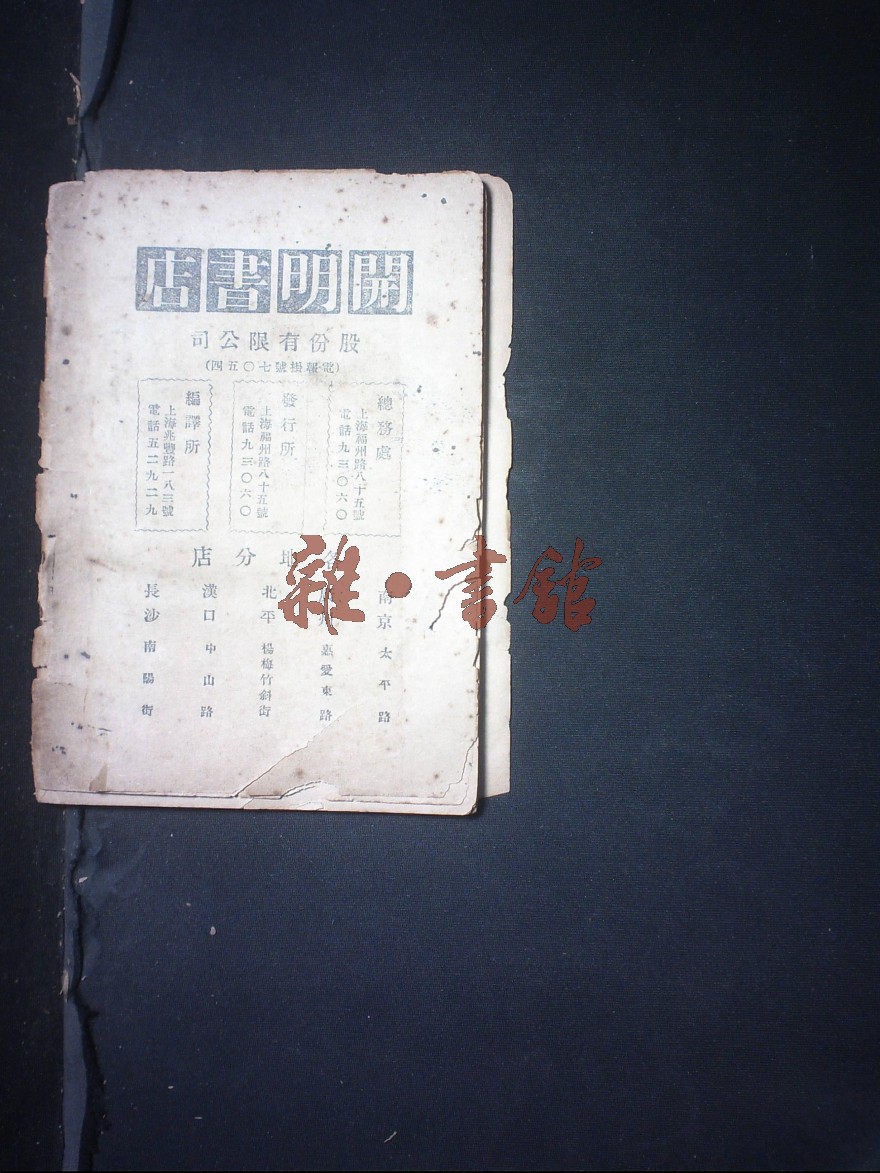 開明書店
股份有限公司
(電報掛號七〇五四)
總務處
上海福州路八十五號
電話九三〇六〇
發行所
上海福州路八十五號
電話九三〇六〇
編譯所
上海兆豐路一八三號
電話五二九二九
各地分店
南京太平路
惠愛東路
北平楊梅竹斜街
漢口中山路
長沙南陽街
雜·書館